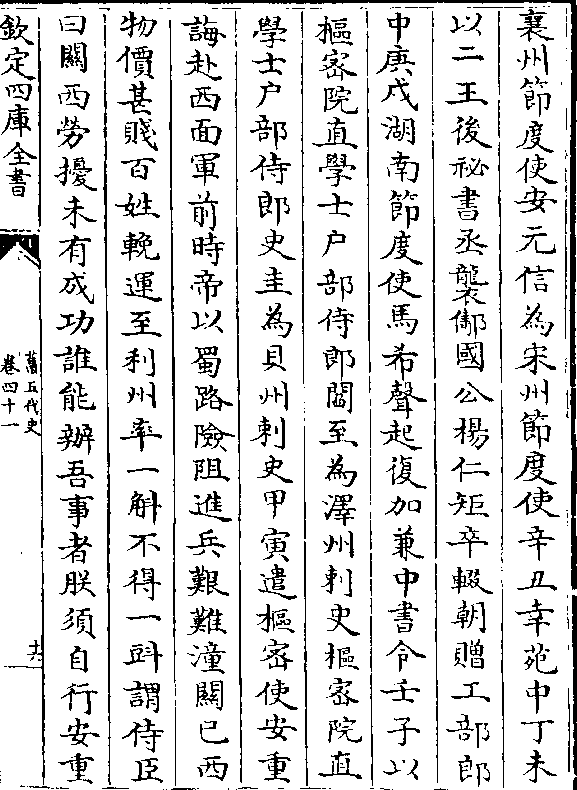 襄州節度使安元信為宋州節度使辛丑幸苑中丁未
以二王後祕書丞襲酅國公楊仁矩卒輟朝贈工部郎
中庚戌湖南節度使馬希聲起復加兼中書令壬子以
樞密院直學士户部侍郎閻至為澤州刺史樞密院直
學士户部侍郎史圭為貝州刺史甲寅遣樞密使安重
誨赴西面軍前時帝以蜀路險阻進兵艱難潼關已西
物價甚賤百姓輓運至利州率一斛不得一㪷謂侍臣
曰關西勞擾未有成功誰能辦吾事者朕須自行安重
欽定四庫全書
舊五代史
卷四十一
十六